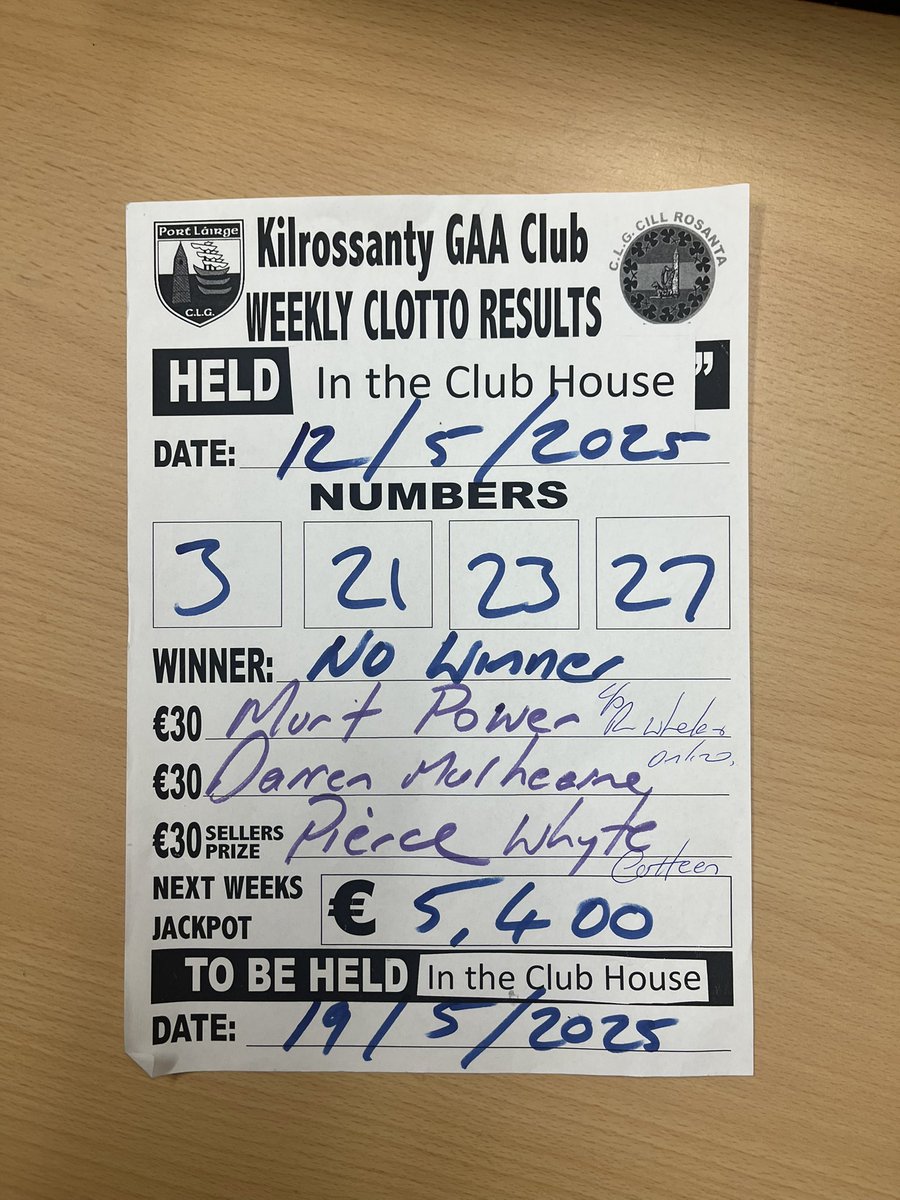 PORT LÁIRGE
C.L.G.
Kilrossanty GAA Club
WEEKLY CLOTTO RESULTS
C.L.G. CILL ROSANTA
HELD In the Club House ”
DATE: 12/5/2025
NUMBERS
3 21 23 27
WINNER: No Winner
€30 Murt Power
€30 Darren Mulhearne
€30 SELLERS PRIZE Pierce Whyte
NEXT WEEKS JACKPOT € 5,400
TO BE HELD In the Club House
DATE: 19/5/2025